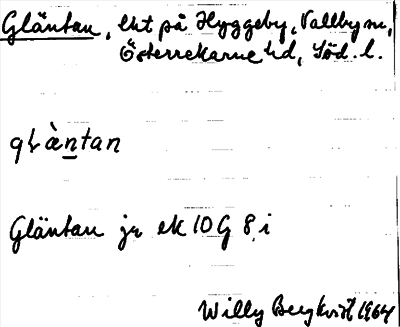 Gläntan, lht på Hyggeby, Vallby sn,
Österrekarne hd, Söd. l.
glàntan
Gläntan jr ek 10 G 8 i
Willy Bergkvist 1964